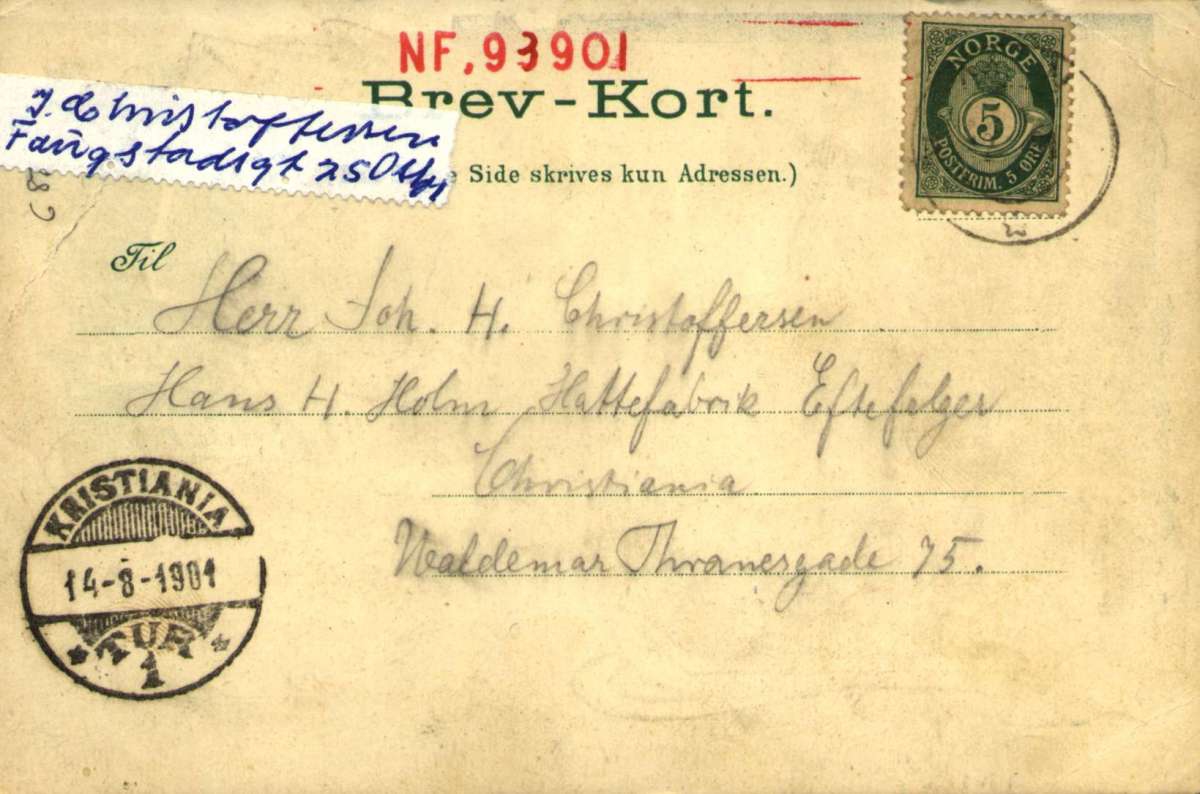 NF.93901
Brev-Kort.
J. Christoffersen
Side skrives kun Adressen.)
NORGE
5
POSTFRIM. 5 ØRE
Til
Herr Joh. H. Christoffersen
Hans H. Holm Hattefabrik Eftefølger
Christiania
Waldemar Thranesgade 75.
KRISTIANIA
14-8-1901
TUR
1